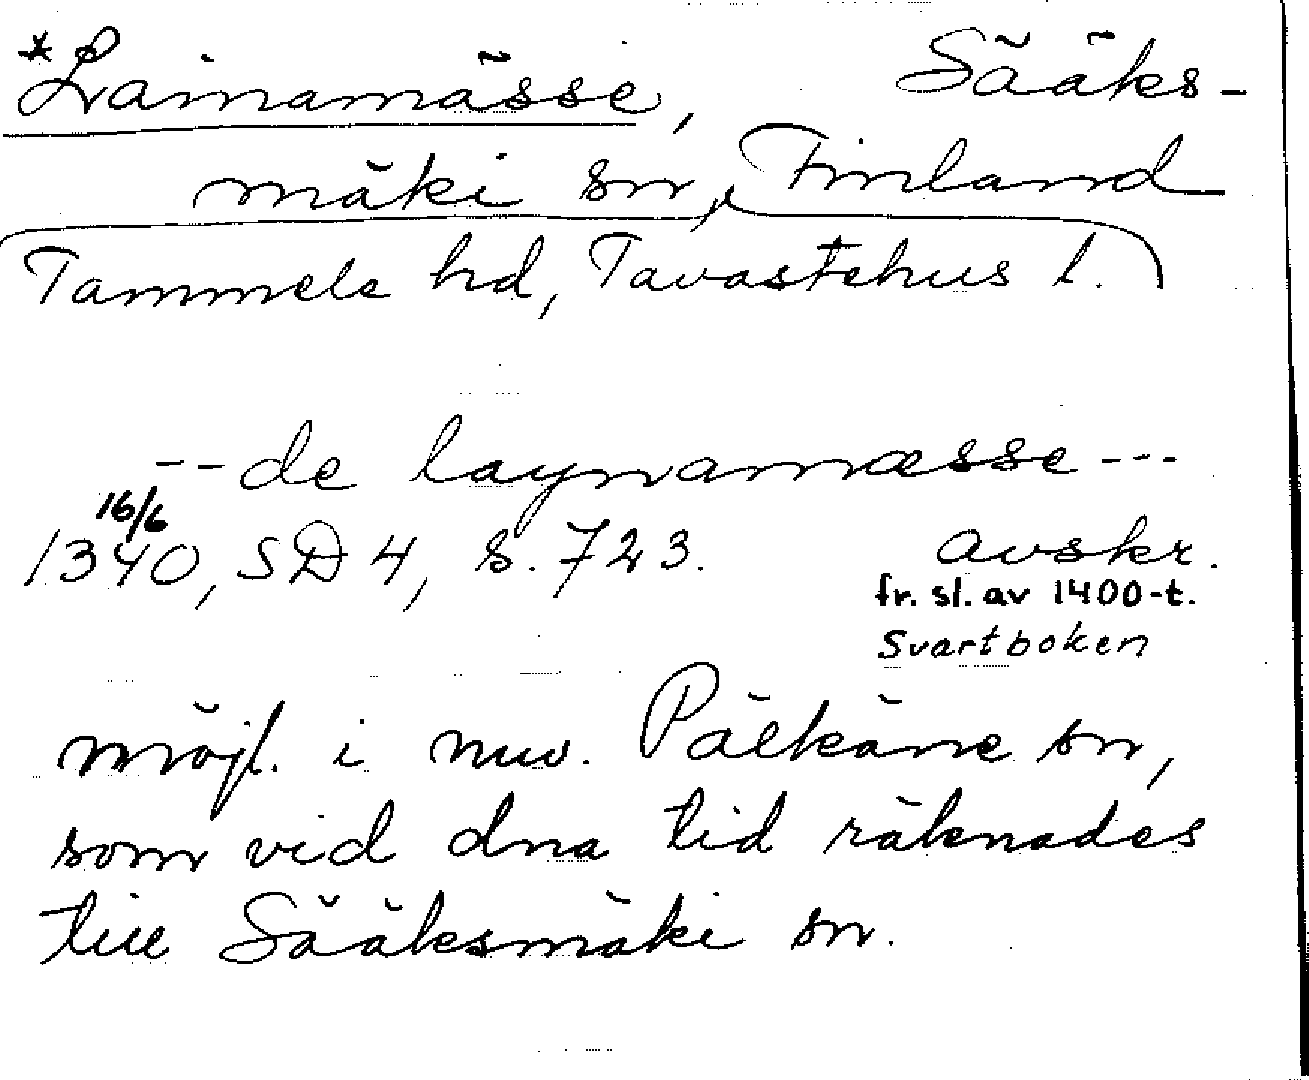 *Lainamässe, Sääks-
mäki sn, Finland
Tammela hd, Tavastehus l.
--de laynamæsse---
16/6
1340, SD 4, s. 723. avskr.
fr. sl. av 1400-t.
Svartboken
möjl. i nuv. Pälkäne sn,
som vid dna tid räknades
till Sääksmäki sn.